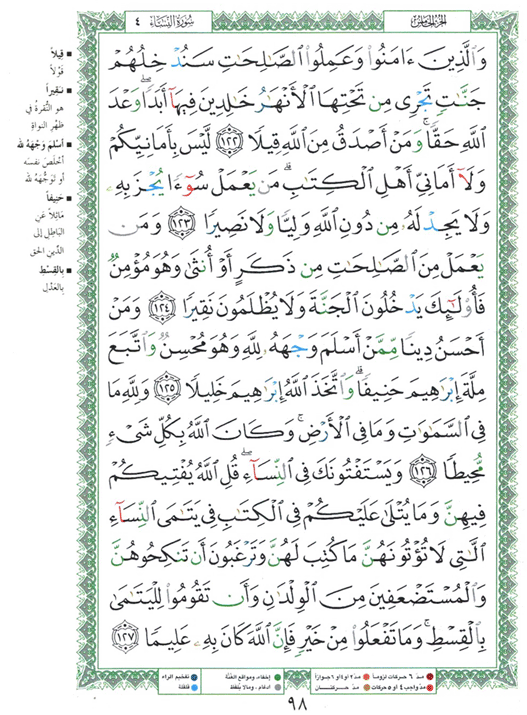 سُورَةُ النِّسَاءِ ٤
الجزء الخامس
وَالَّذِينَ ءَامَنُوا۟ وَعَمِلُوا۟ الصَّـٰلِحَـٰتِ سَنُدْخِلُهُمْ
جَنَّـٰتٍ تَجْرِى مِن تَحْتِهَا الْأَنْهَـٰرُ خَـٰلِدِينَ فِيهَآ أَبَدًا ۖ وَعْدَ
اللَّهِ حَقًّا ۚ وَمَنْ أَصْدَقُ مِنَ اللَّهِ قِيلًا ﴿١٢٢﴾ لَّيْسَ بِأَمَانِيِّكُمْ
وَلَآ أَمَانِىِّ أَهْلِ الْكِتَـٰبِ ۗ مَن يَعْمَلْ سُوٓءًا يُجْزَ بِهِۦ
وَلَا يَجِدْ لَهُۥ مِن دُونِ اللَّهِ وَلِيًّا وَلَا نَصِيرًا ﴿١٢٣﴾ وَمَن
يَعْمَلْ مِنَ الصَّـٰلِحَـٰتِ مِن ذَكَرٍ أَوْ أُنثَىٰ وَهُوَ مُؤْمِنٌ
فَأُو۟لَـٰٓئِكَ يَدْخُلُونَ الْجَنَّةَ وَلَا يُظْلَمُونَ نَقِيرًا ﴿١٢٤﴾ وَمَنْ
أَحْسَنُ دِينًا مِّمَّنْ أَسْلَمَ وَجْهَهُۥ لِلَّهِ وَهُوَ مُحْسِنٌ وَاتَّبَعَ
مِلَّةَ إِبْرَٰهِيمَ حَنِيفًا ۗ وَاتَّخَذَ اللَّهُ إِبْرَٰهِيمَ خَلِيلًا ﴿١٢٥﴾ وَلِلَّهِ مَا
فِى السَّمَـٰوَٰتِ وَمَا فِى الْأَرْضِ ۚ وَكَانَ اللَّهُ بِكُلِّ شَىْءٍ
مُّحِيطًا ﴿١٢٦﴾ وَيَسْتَفْتُونَكَ فِى النِّسَآءِ ۖ قُلِ اللَّهُ يُفْتِيكُمْ
فِيهِنَّ وَمَا يُتْلَىٰ عَلَيْكُمْ فِى الْكِتَـٰبِ فِى يَتَـٰمَى النِّسَآءِ
الَّـٰتِى لَا تُؤْتُونَهُنَّ مَا كُتِبَ لَهُنَّ وَتَرْغَبُونَ أَن تَنكِحُوهُنَّ
وَالْمُسْتَضْعَفِينَ مِنَ الْوِلْدَٰنِ وَأَن تَقُومُوا۟ لِلْيَتَـٰمَىٰ
بِالْقِسْطِ ۚ وَمَا تَفْعَلُوا۟ مِنْ خَيْرٍ فَإِنَّ اللَّهَ كَانَ بِهِۦ عَلِيمًا ﴿١٢٧﴾
■ قِيلاً
قَوْلاً
■ نَقِيراً
هو النُّقْرةُ في
ظَهْرِ النواةِ
■ أَسْلَمَ وَجْهَهُ لله
أخلَصَ نفسَه
أو توجُّهَهُ لله
■ حَنِيفاً
مَائِلاً عَن
البَاطِلِ إلى
الدِّينِ الحق
■ بالقِسْطِ
بالعَدْلِ
مدّ ٦ حركات لزوماً
مدّ ٢ أو ٤ أو ٦ جوازاً
إخفاء، ومواقع الغُنَّة
تفخيم الراء
مدّ واجب ٤ أو ٥ حركات
مدّ حركتان
ادغام، وما لا يُلفَظ
قلقلة
٩٨